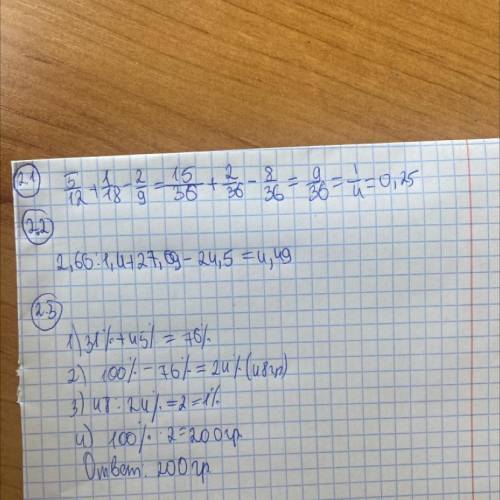 2.1
5/12 + 1/18 - 2/9 = 15/36 + 2/36 - 8/36 = 9/36 = 1/4 = 0,25
2.2
2,66 : 1,4 + 27,09 - 24,5 = 4,49
2.3
1) 31% + 45% = 76%
2) 100% - 76% = 24% (48гр)
3) 48 : 24% = 2 = 1%
4) 100% · 2 = 200гр
Ответ: 200гр